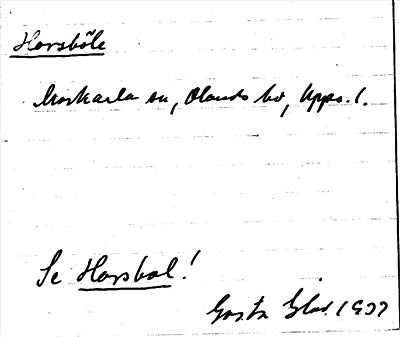 Harsböle
Morkarla sn, Olands hd, Upps. l.
Se Harsbol!
Gösta Glas. 1937